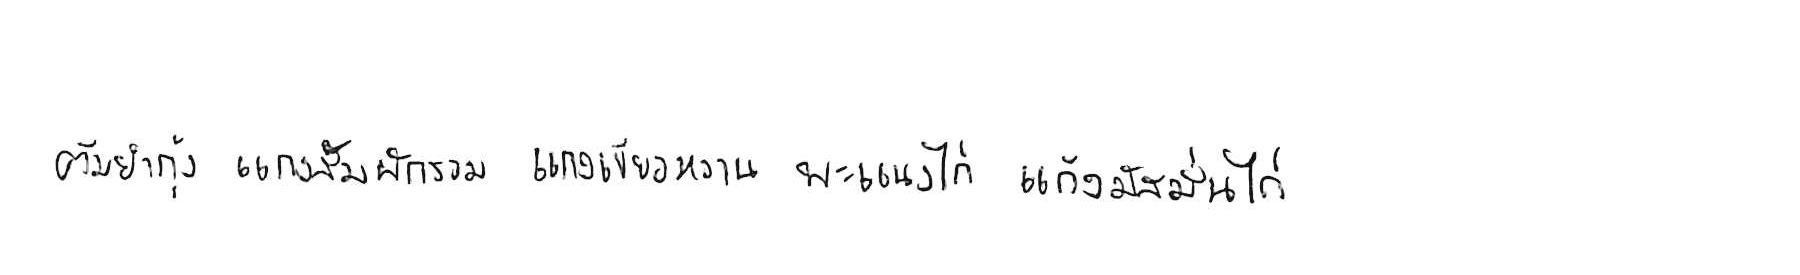 ต้มยำกุ้ง แกงส้มผักรวม แกงเขียวหวาน พะแนงไก่ แก้งมัสมั่นไก่